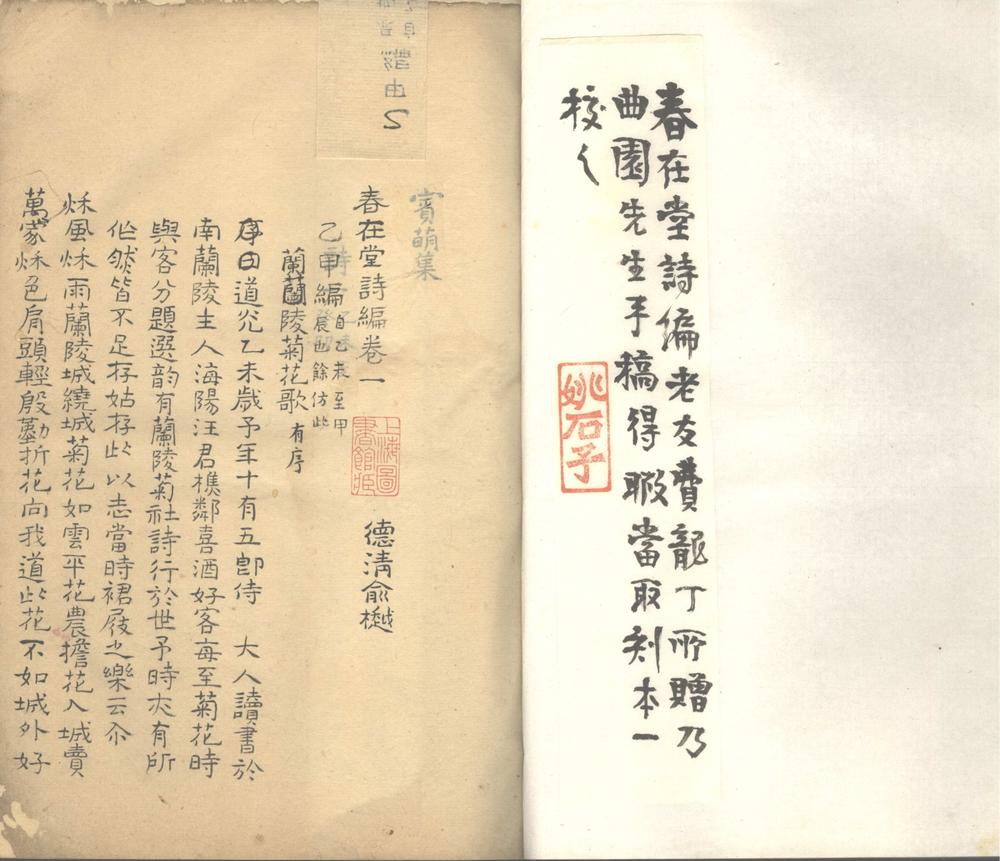 春在堂詩編老友費龍丁所贈乃
曲園先生手稿得暇當取刻本一
校之
姚石子
賓萌集
春在堂詩編卷一
上海圖書館藏
德清俞樾
乙甲編 自乙未至甲辰也餘仿此
蘭陵菊花歌 有序
序曰道光乙未歲予年十有五即侍 大人讀書於
南蘭陵主人海陽汪君樵鄰喜酒好客每至菊花時
與客分題選韵有蘭陵菊社詩行於世予時亦有所
作然皆不足存姑存此以志當時裙屐之樂云尒
秌風秌雨蘭陵城繞城菊花如雲平花農擔花入城賣
萬家秌色肩頭輕殷勤折花向我道此花不如城外好